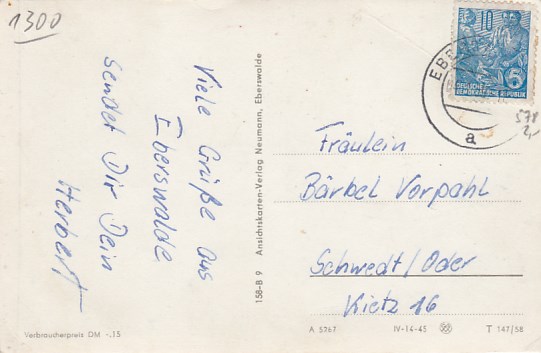 1300
Viele Grüße aus
Eberswalde
sendet Dir Dein
Herbert
Verbraucherpreis DM -.15
158-B 9 Ansichtskarten-Verlag Neumann, Eberswalde
10
DEUTSCHE
DEMOKRATISCHE REPUBLIK
5
EBE
a
578
2,-
Fräulein
Bärbel Vorpahl
Schwedt/Oder
Kietz 16
A 5767 IV-14-45 T 147/58